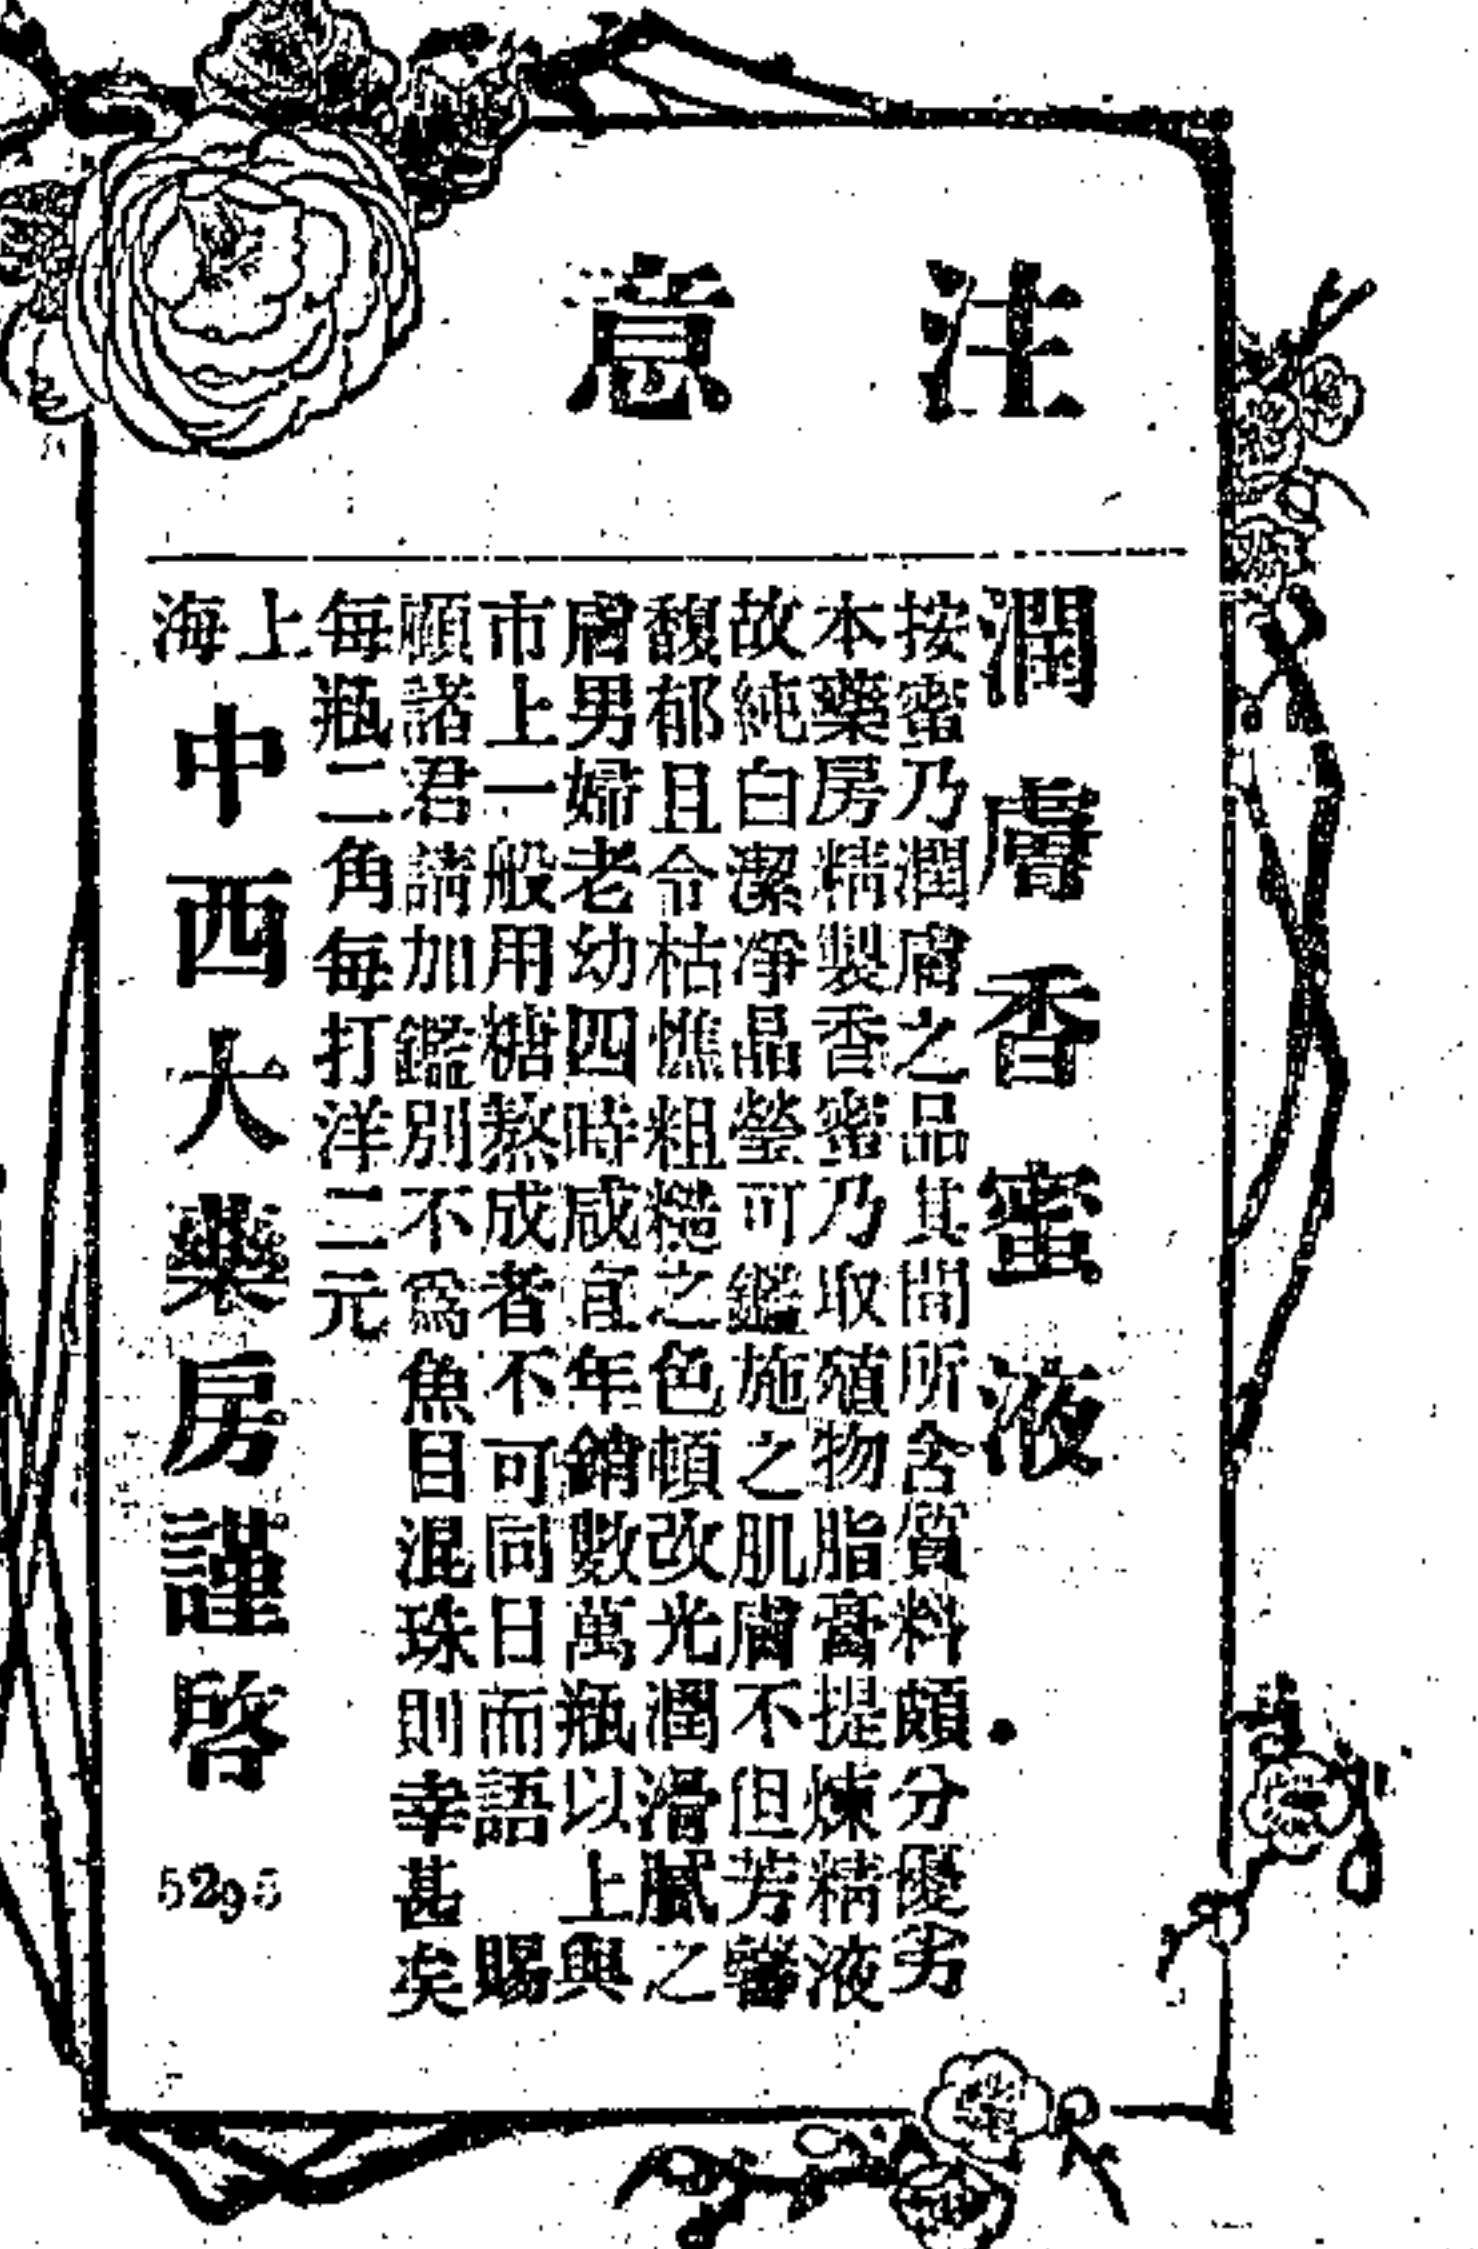 注意
潤膚香蜜液
按蜜乃潤膚之品其間所含質料頗分優劣
本藥房精製香蜜乃取殖物脂膏提煉精液
故純白潔凈晶瑩可鑑施之肌膚不但芳馨
馥郁且令枯憔粗糙之色頓改光潤滑膩之
膚男婦老幼四時咸宜年銷數萬瓶以上與
市上一般用糖熬成者不可同日而語 賜
顧諸君請加鑑別不爲魚目混珠則幸甚矣
每瓶二角每打洋二元
上海
中西大藥房謹啓
5295